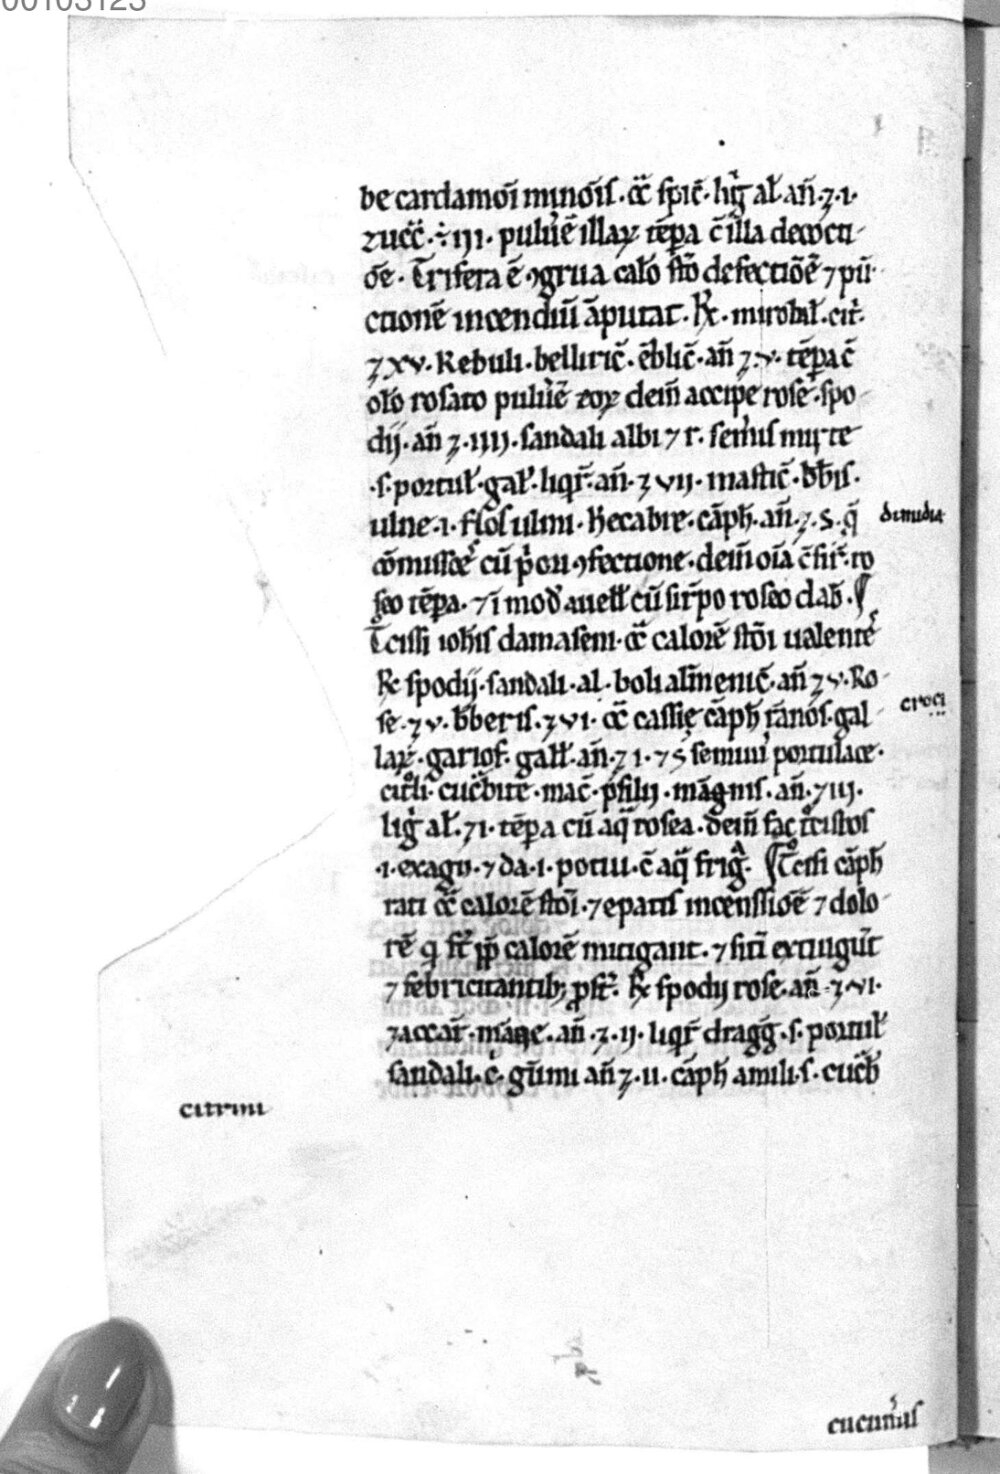 00103123
be cardamoī minoīs · cc̄ spic̄ · liḡ al̄ · an̄ · ʒ · i ·
zucc̄ · ÷ iii · pulūe illaꝝ tēpa c̄ illa decocti
oē · Trifera ē ꝯgrua calō stō defectiōē ⁊ pū
ctionē incendiū āputat · ℞ · mirobal̄ · cit̄ ·
ʒ xv · kebuli · belliric̄ · ēblic̄ · an̄ ʒ · v · tēpa c̄
olō rosato pulūē eoꝝ dein̄ accipe rose · spo
dij · an̄ ʒ · iiii · sandali albi ⁊ r · sem̄is mirte
· s · portul̄ · gal̄ · liqr̄ · an̄ · ʒ vii · mastic̄ · bb̄is ·
ulne · i · flos̄ ulmi · hecabre · cāph̄ · an̄ · ʒ · s · q̄
dimidia
ꝯmisse cū pori ꝯfectione · dein̄ oīa c̄ sir̄ · ro
seo tēpa · ⁊ ī mod̄ auell̄ cū sir̄po roseo dab̄ · ¶
Tcissi ioh̄is damaseni · cc̄ calorē stōi ualentē
℞ spodij · sandali · al · boli alm̄enic̄ · an̄ ʒ v · Ro
se · ʒ v · bb̄eris · ʒ vi · cc̄ cassie cāph̄ rānos · gal
croci
laꝝ · gariof̄ · gall̄ · an̄ · ʒ i · ⁊ s semini portulace ·
citl̄i · cuc̄bite · mac̄ · psilij · māgnis · an̄ · ʒ iii ·
liḡ al̄ · ʒ i · tēpa cū aq̄ rosea · dein̄ fac tcistos
· i · exagii · ⁊ da · i · potui · c̄ aq̄ friḡ · ¶ Tcissi cāph̄
rati cc̄ calorē stōi · ⁊ epatis incenssiōē ⁊ dolo
rē q̄ st̄ pp̄ calorē mitigant · ⁊ sitī extingūt
⁊ febricitantibꝫ ꝓst̄ · ℞ spodij rose · an̄ · ʒ vi ·
zaccar̄ · māne · an̄ · ʒ · ii · liqr̄ dragḡ · s · portul̄
sandali · c̄ · gūmi an̄ ʒ · ii · cāph̄ amili · s · cuc̄b̄
citrini
cucum̄is